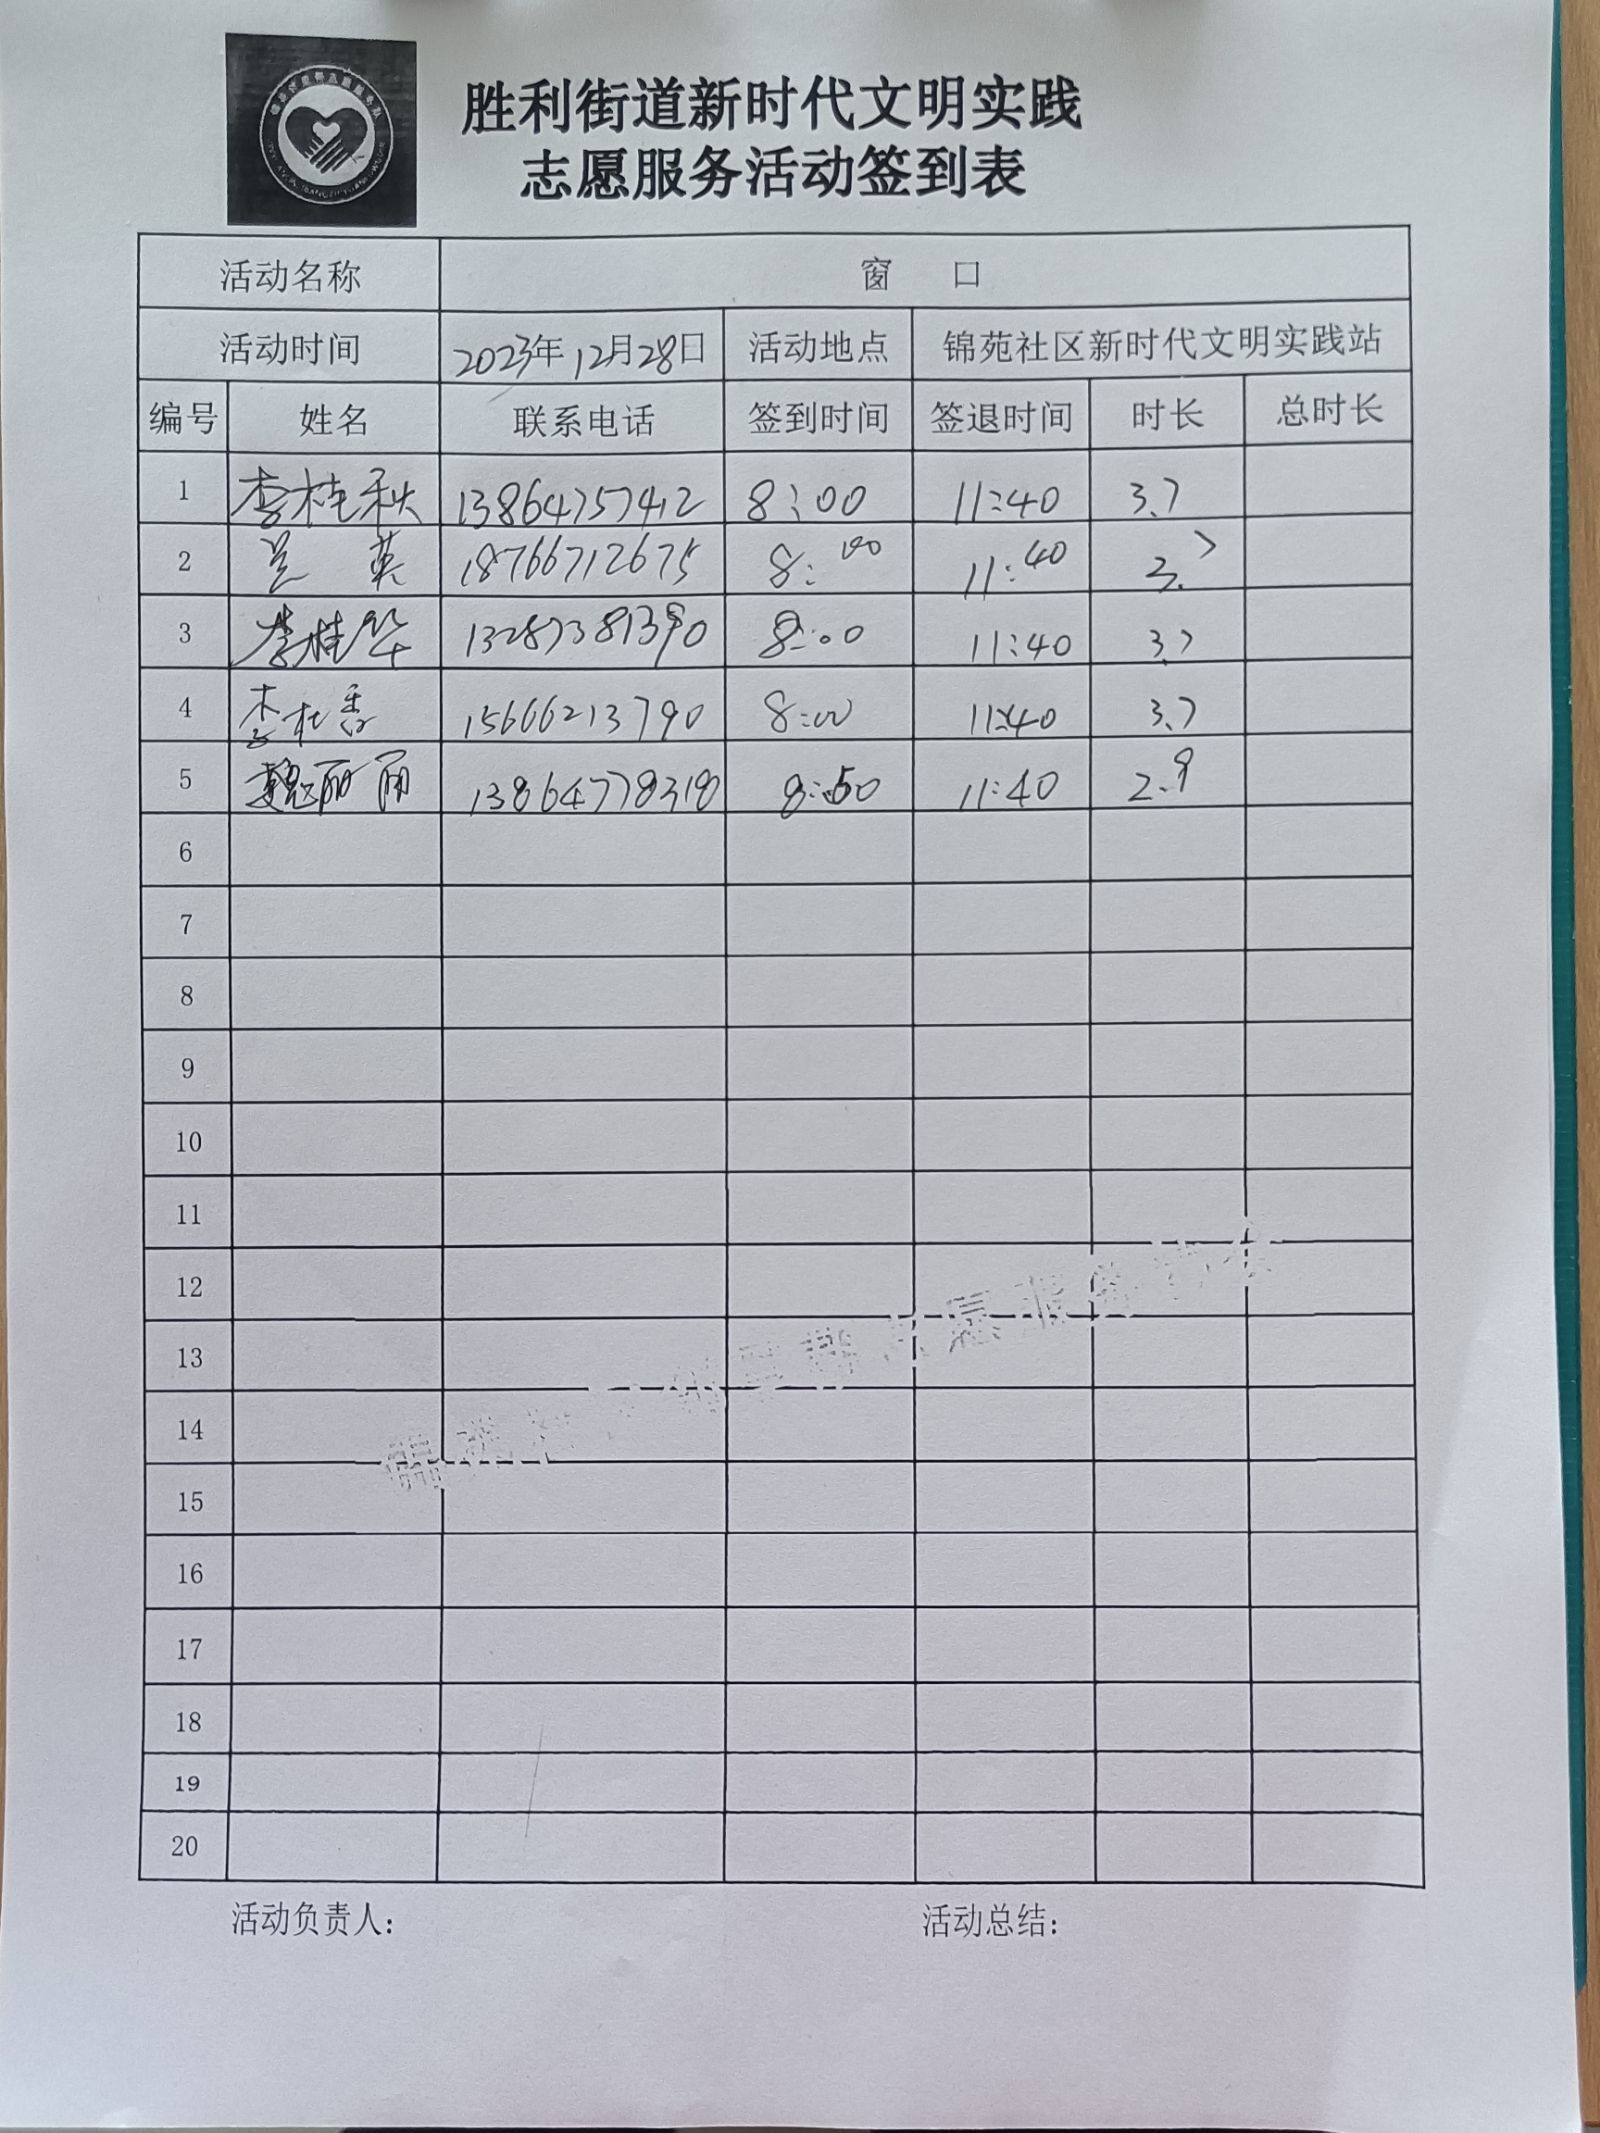 胜利街道新时代文明实践
志愿服务活动签到表
活动名称 窗 口
活动时间 2023年12月28日 活动地点 锦苑社区新时代文明实践站
编号 姓名 联系电话 签到时间 签退时间 时长 总时长
1 李桂秋 13864757412 8:00 11:40 3.7
2 兰英 18766712675 8:00 11:40 3.7
3 李桂华 13287381390 8:00 11:40 3.7
4 李桂香 15666213790 8:00 11:40 3.7
5 魏丽丽 13864778318 8:50 11:40 2.9
6
7
8
9
10
11
12
13
14
15
16
17
18
19
20
活动负责人: 活动总结: